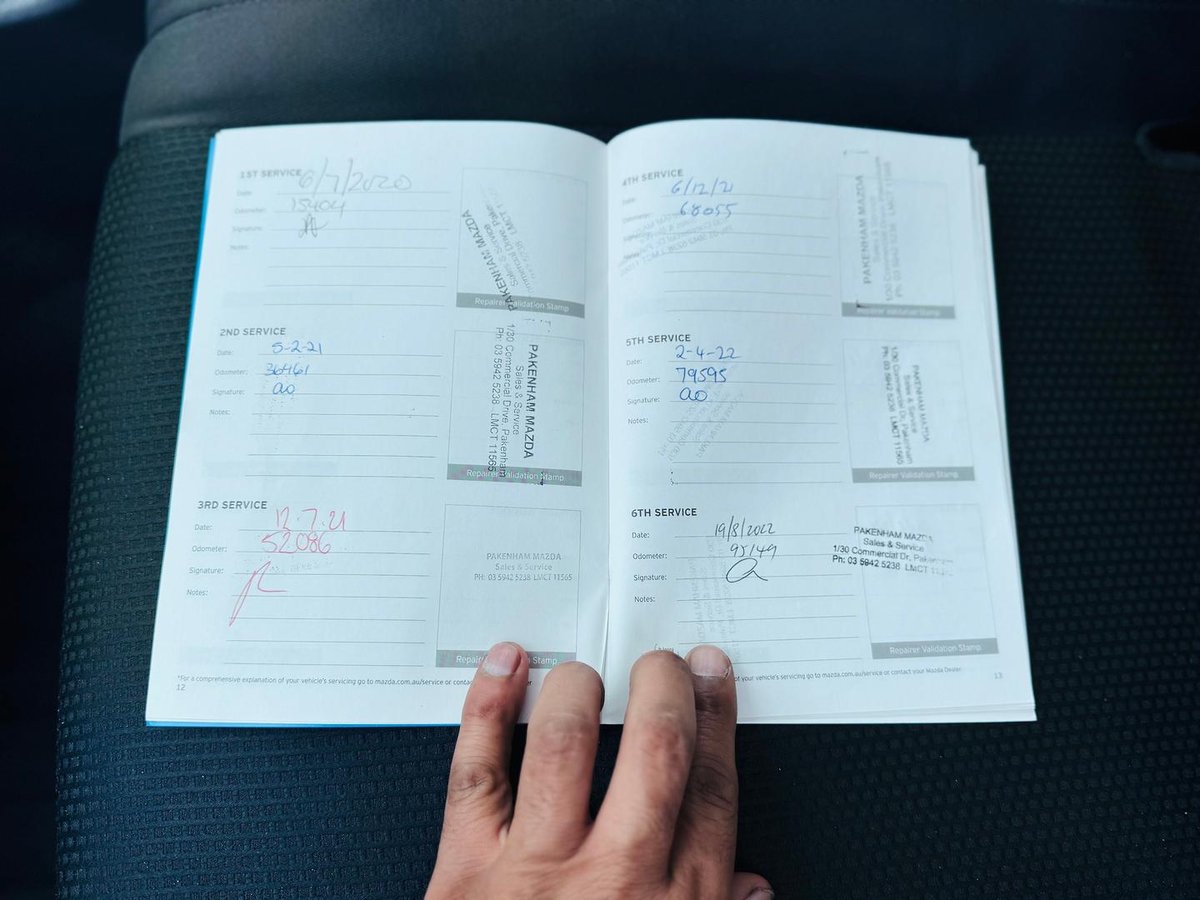 1ST SERVICE
Date: 6/7/2020
Odometer: 15404
Signature:
Notes:
PAKENHAM MAZDA
Sales & Service
Commercial Drive, Pake
5238 LMCT 1
Repairer Validation Stamp
2ND SERVICE
Date: 5-2-21
Odometer: 36461
Signature: ao
Notes:
PAKENHAM MAZDA
Sales & Service
1/30 Commercial Drive, Pakenham
Ph: 03 5942 5238 LMCT 11565
Repairer Validation Stamp
3RD SERVICE
Date: 12.7.21
Odometer: 52086
Signature:
Notes:
PAKENHAM MAZDA
Sales & Service
PH: 03 5942 5238 LMCT 11565
Stamp
*For a comprehensive explanation of your vehicle's servicing go to mazda.com.au/service or contact
12
4TH SERVICE
Date: 6/12/21
Odometer: 68055
Signature:
Notes:
PAKENHAM MAZDA
Sales & Service
Repairer Validation Stamp
5TH SERVICE
Date: 2-4-22
Odometer: 79595
Signature: ao
Notes:
PAKENHAM MAZDA
Sales & Service
1/30 Commercial Dr, Pakenham
Ph: 03 5942 5238 LMCT 11565
Repairer Validation Stamp
6TH SERVICE
Date: 19/8/2022
Odometer: 95149
Signature:
Notes:
PAKENHAM MAZDA
Sales & Service
1/30 Commercial Dr, Pakenham
Ph: 03 5942 5238 LMCT
Repairer Validation Stamp
of your vehicle's servicing go to mazda.com.au/service or contact your Mazda Dealer
13